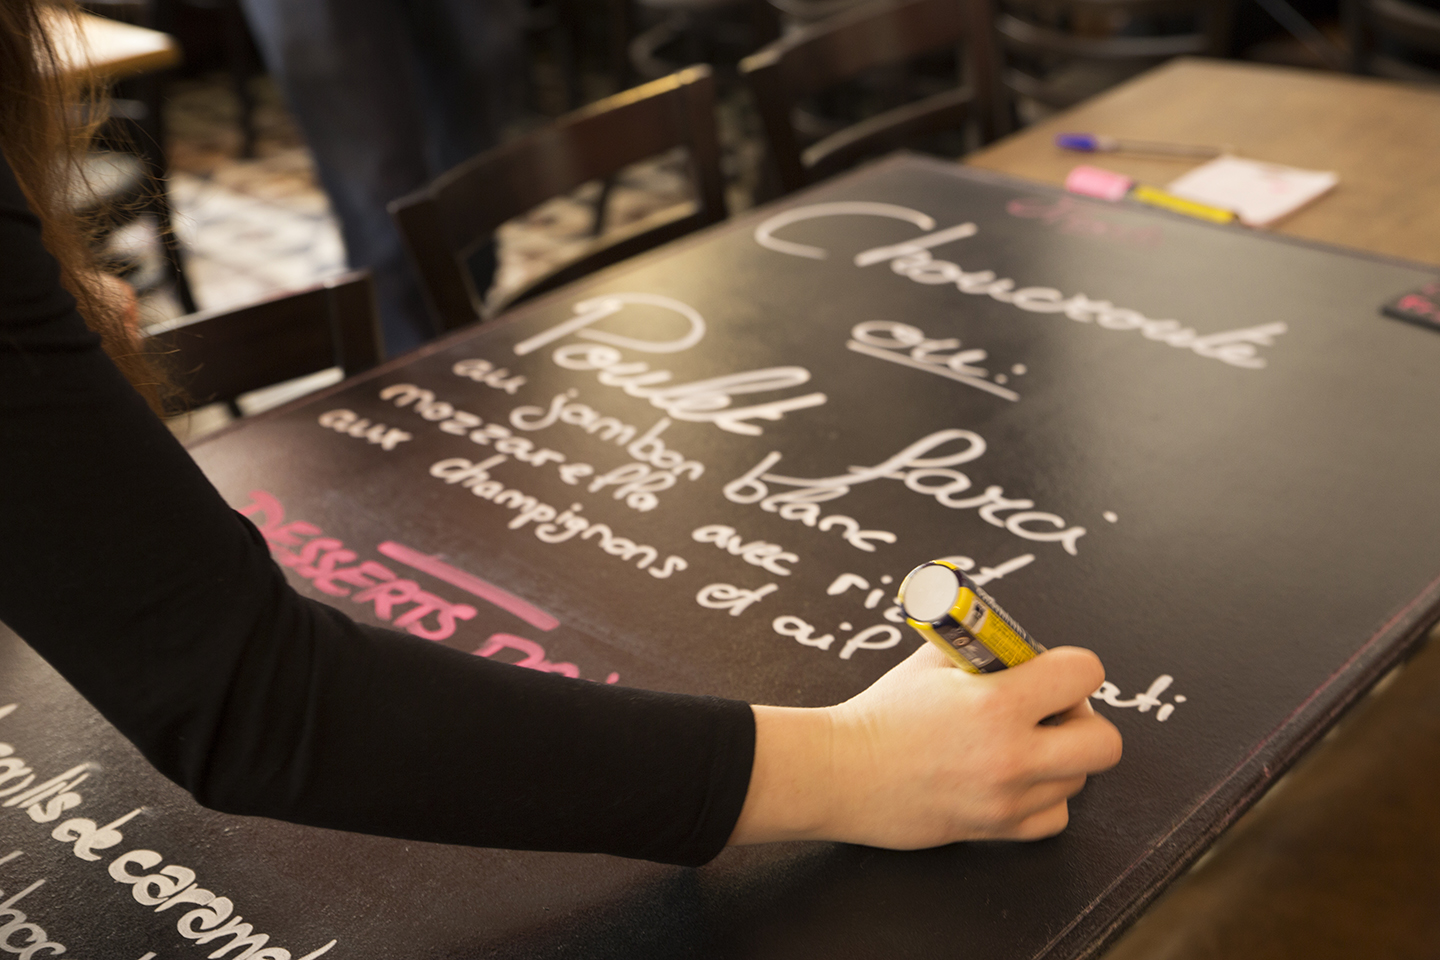 Choucroute
ou:
Poulet farci
au jambon blanc et
mozzarella avec riz
aux champignons et ail
DESSERTS
coulis de caramel